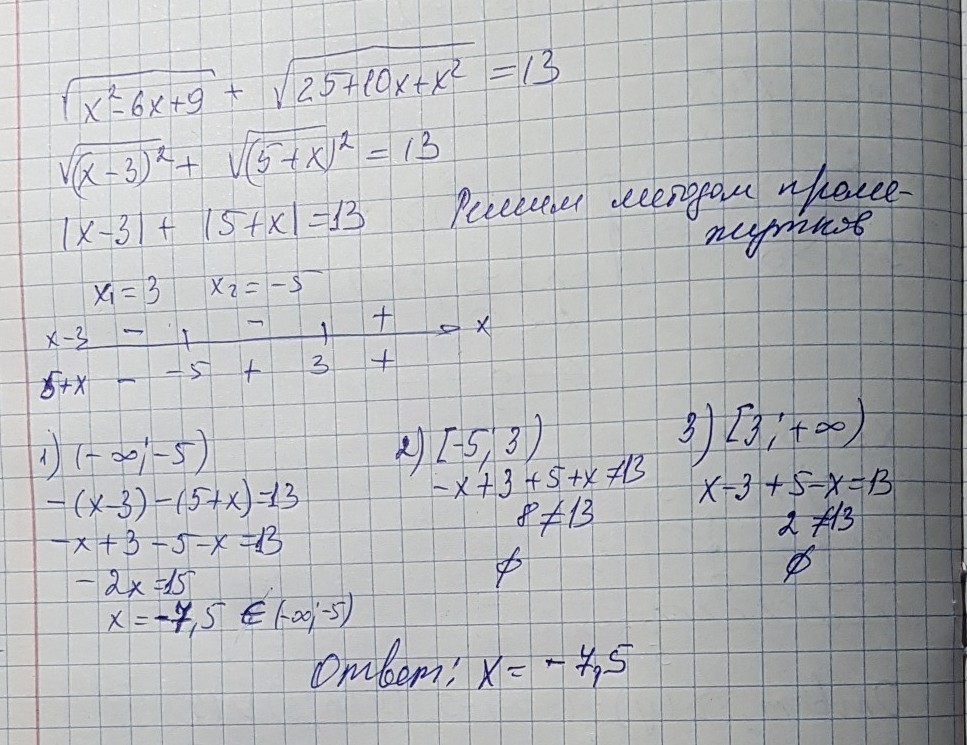 √(x²-6x+9) + √(25+10x+x²) = 13
√(x-3)² + √(5+x)² = 13
|x-3| + |5+x| = 13 Решим методом проме-
жутков
x₁ = 3 x₂ = -5
x-3 - - + x
5+x - -5 + 3 +
1) (-∞; -5)
-(x-3) -(5+x) = 13
-x+3-5-x = 13
-2x = 15
x = -7,5 ∈ (-∞; -5)
2) [-5; 3)
-x+3+5+x ≠ 13
8 ≠ 13
∅
3) [3; +∞)
x-3+5-x = 13
2 ≠ 13
∅
Ответ: x = -7,5